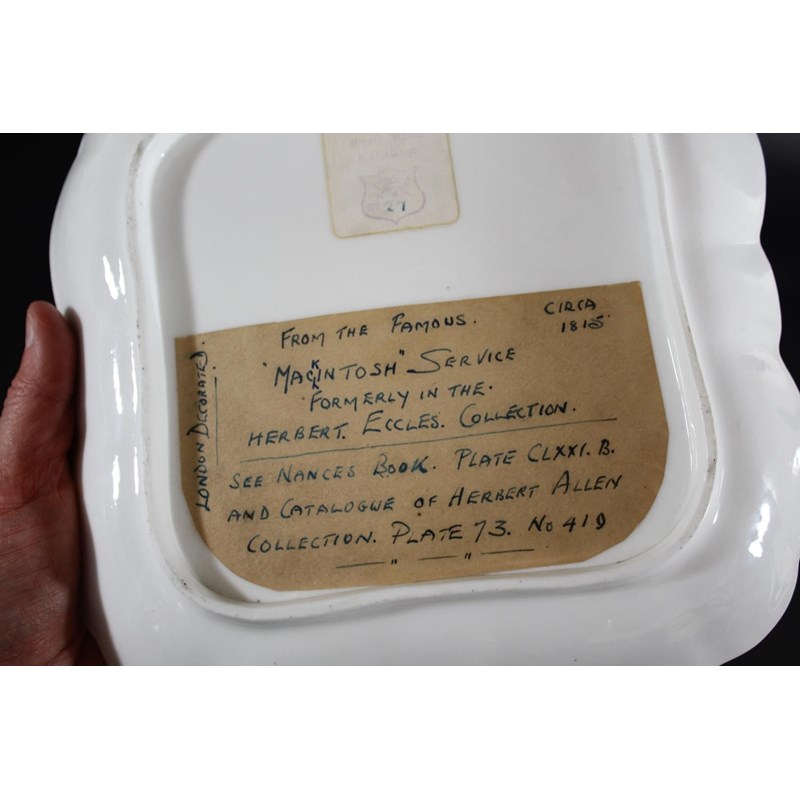 27
FROM THE FAMOUS.
CIRCA
1815
"MACKINTOSH" SERVICE
FORMERLY IN THE.
HERBERT. ECCLES. COLLECTION.
SEE NANCES BOOK. PLATE CLXXI. B.
AND CATALOGUE OF HERBERT ALLEN
COLLECTION. PLATE 73. No 419
LONDON DECORATED.